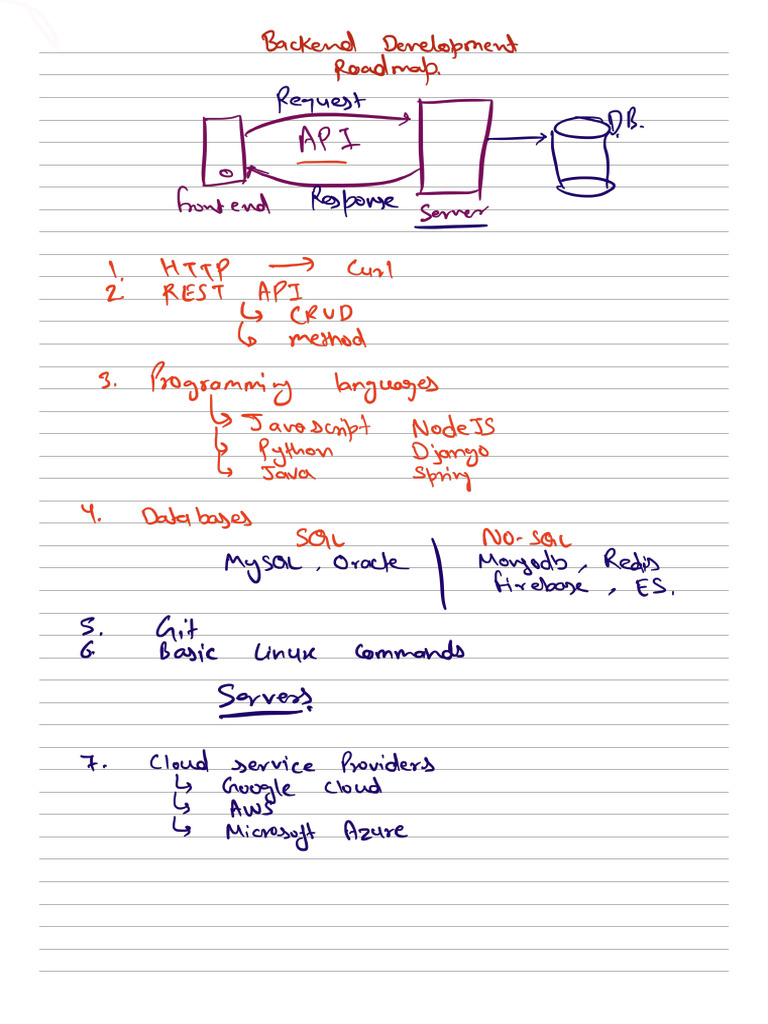 Backend Development
Roadmap.
Request
API
D.B.
Frontend
Response
Server
1. HTTP → Curl
2. REST API
↳ CRUD
↳ method
3. Programming languages
↳ Javascript NodeJS
↳ Python Django
↳ Java Spring
4. Databases
SQL NO-SQL
MySQL, Oracle Mongodb, Redis
firebase, ES.
5. Git
6. Basic Linux commands
Servers.
7. Cloud service Providers
↳ Google cloud
↳ AWS
↳ Microsoft Azure